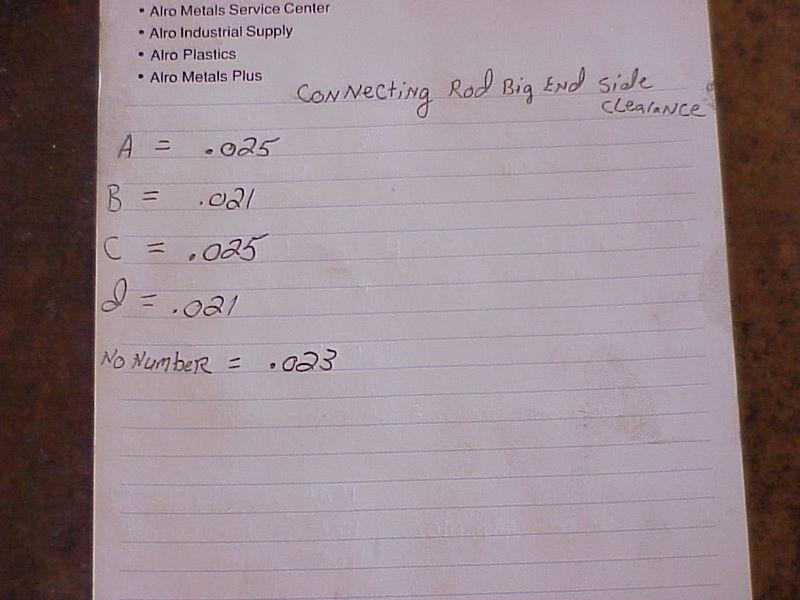 • Alro Metals Service Center
• Alro Industrial Supply
• Alro Plastics
• Alro Metals Plus
Connecting Rod Big End Side
Clearance
A = .025
B = .021
C = .025
d = .021
No Number = .023